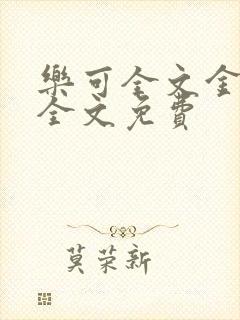 樂可全文全
全文免費
莫荣新